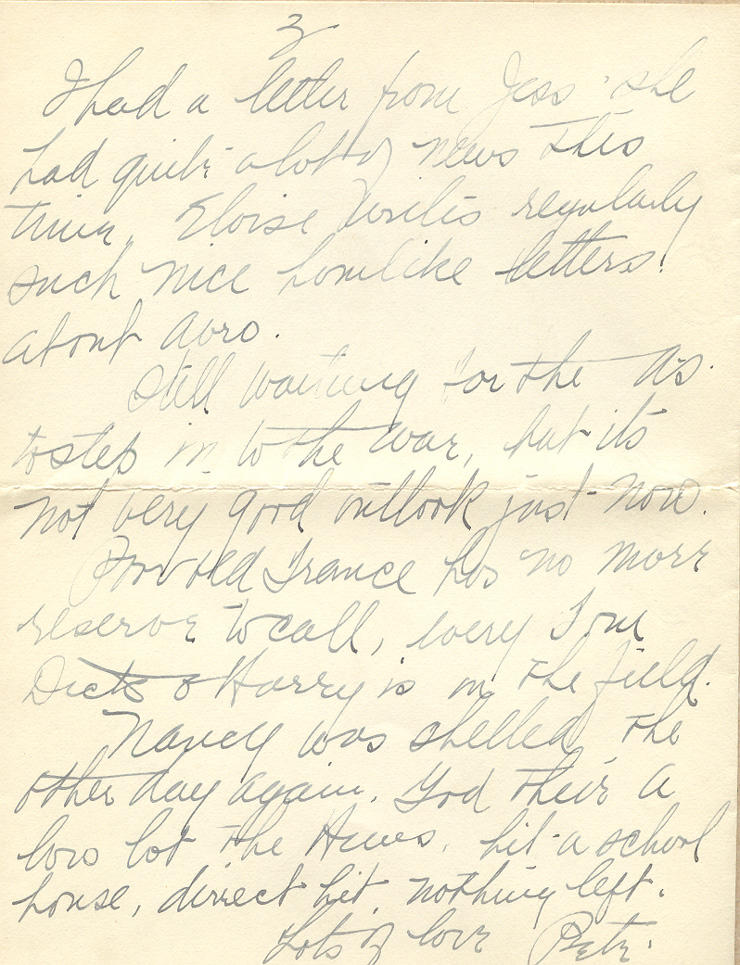 3
I had a letter from Jess she
had quite a lot of news this
time. Eloise writes regularly
such nice homelike letters.
about Avro.
Still waiting for the U.S.
to step in to the war, but its
not very good outlook just now.
Poor old France has no more
reserve to call, every Tom
Dick & Harry is in the field.
Nancy was shelled the
other day again. God their a
low lot the Huns. hit a school
house, direct hit. nothing left.
Lots of love Pete.